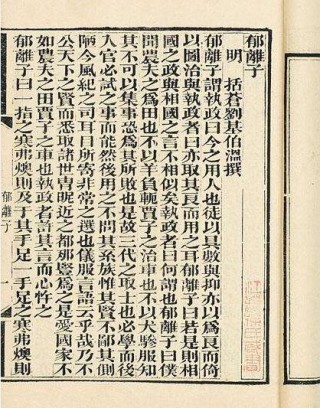 郁離子
明 括蒼劉基伯溫撰
郁離子謂執政曰今之用人也徒以具數與抑亦以爲良而倚
以圖治與執政者曰亦取其良而用之耳郁離子曰若是則相
國之政與相國之言不相似矣執政者曰何謂也郁離子曰僕
聞農夫之爲田也不以羊負軛賈子之治車也不以犬驂服知
其不可以集事恐爲其所敗也是故三代之取士也必學而後
入官必試之事而能然後用之不問其系族惟其賢不鄙其側
陋今風紀之司耳目所寄非常之選也儀服言語云乎哉乃不
公天下之賢而悉取諸世胄昵近之都那豎爲之是愛國家不
如農夫之田賈子之車也執政者許其言而心忤之
郁離子曰一指之寒弗燠則及于其手足一手足之寒弗燠則
郁離子
一